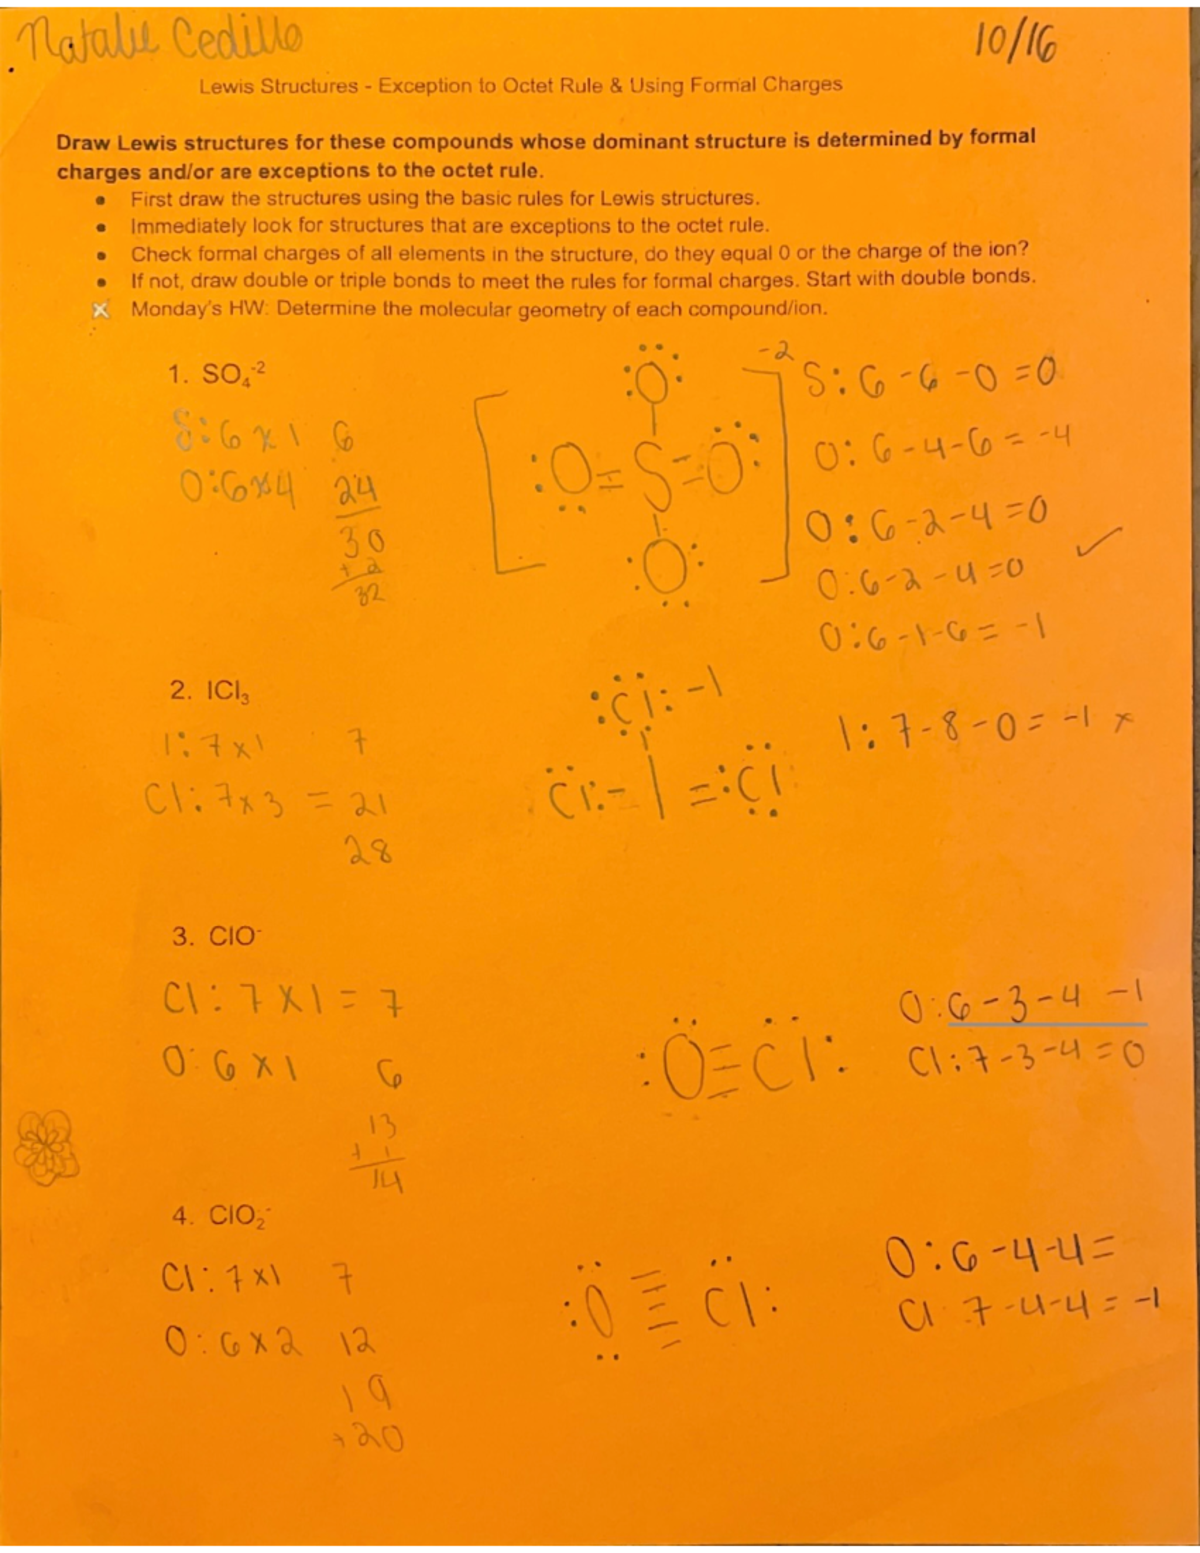 Natalie Cedillo 10/16
Lewis Structures - Exception to Octet Rule & Using Formal Charges
Draw Lewis structures for these compounds whose dominant structure is determined by formal
charges and/or are exceptions to the octet rule.
• First draw the structures using the basic rules for Lewis structures.
• Immediately look for structures that are exceptions to the octet rule.
• Check formal charges of all elements in the structure, do they equal 0 or the charge of the ion?
• If not, draw double or triple bonds to meet the rules for formal charges. Start with double bonds.
x Monday's HW: Determine the molecular geometry of each compound/ion.
1. SO₄⁻²
S:6x1 6
O:6x4 24
30
+2
32
:O:
:O=S=O:
:O:
-2
S:6-6-0=0
O:6-4-6=-4
O:6-2-4=0
O:6-2-4=0
O:6-1-6=-1
✓
2. ICl₃
I:7x1 7
Cl:7x3 = 21
28
:Cl:-1
Cl:-I=:Cl
I:7-8-0=-1 x
3. ClO⁻
Cl:7x1=7
O:6x1 6
13
+1
14
:O≡Cl:
O:6-3-4 -1
Cl:7-3-4=0
4. ClO₂⁻
Cl:7x1 7
O:6x2 12
19
+20
:O≣Cl:
O:6-4-4=
Cl 7-4-4=-1